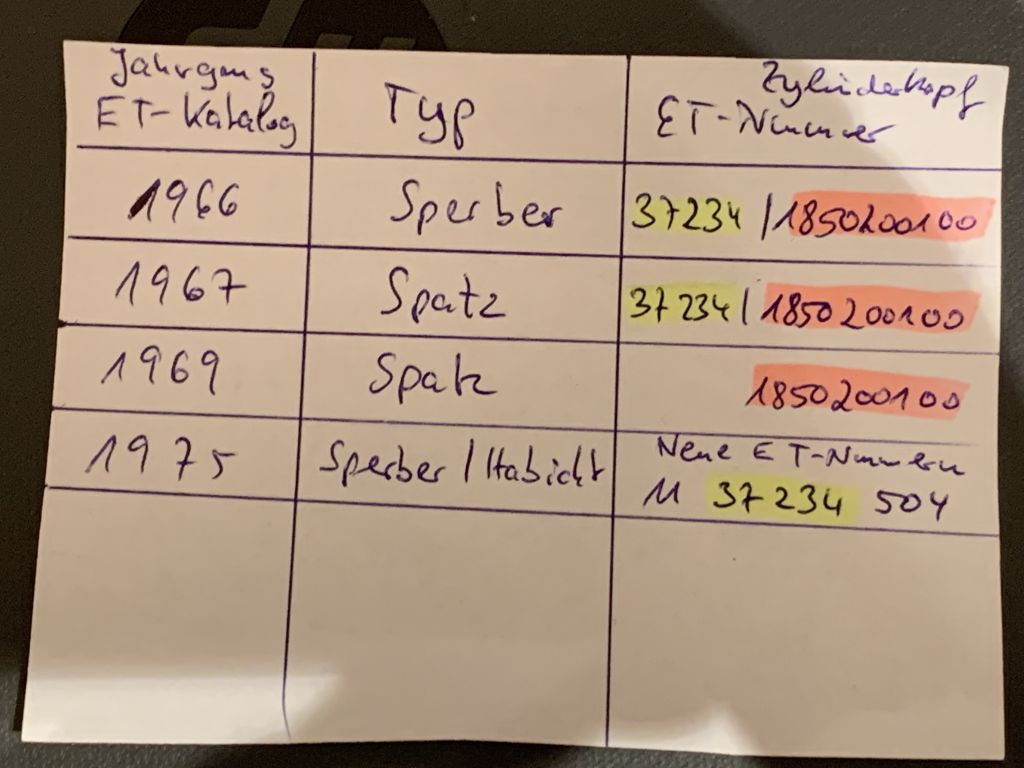 Jahrgang
ET-Katalog
Typ
Zylinderkopf
ET-Nummer
1966 Sperber 37234 / 1850200100
1967 Spatz 37234 / 1850200100
1969 Spatz 1850200100
1975 Sperber / Habicht Neue ET-Nummern
11 37234 504